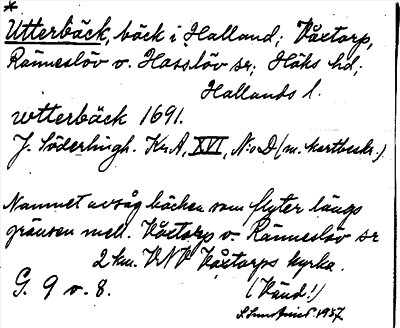 *
Utterbäck, bäck i Halland; Våxtorp,
Ränneslöv o. Hasslöv sr; Höks hd;
Hallands l.
utterbäck 1691.
J. Söderlingh. Kr. A, XVI, N:o D (m. kartbeskr.)
Namnet avsåg bäcken som flyter längs
gränsen mell. Våxtorp o. Ränneslöv sr
2 km. VNV Våxtorps kyrka.
G. 9 v. 8.
(Vänd!)
1937